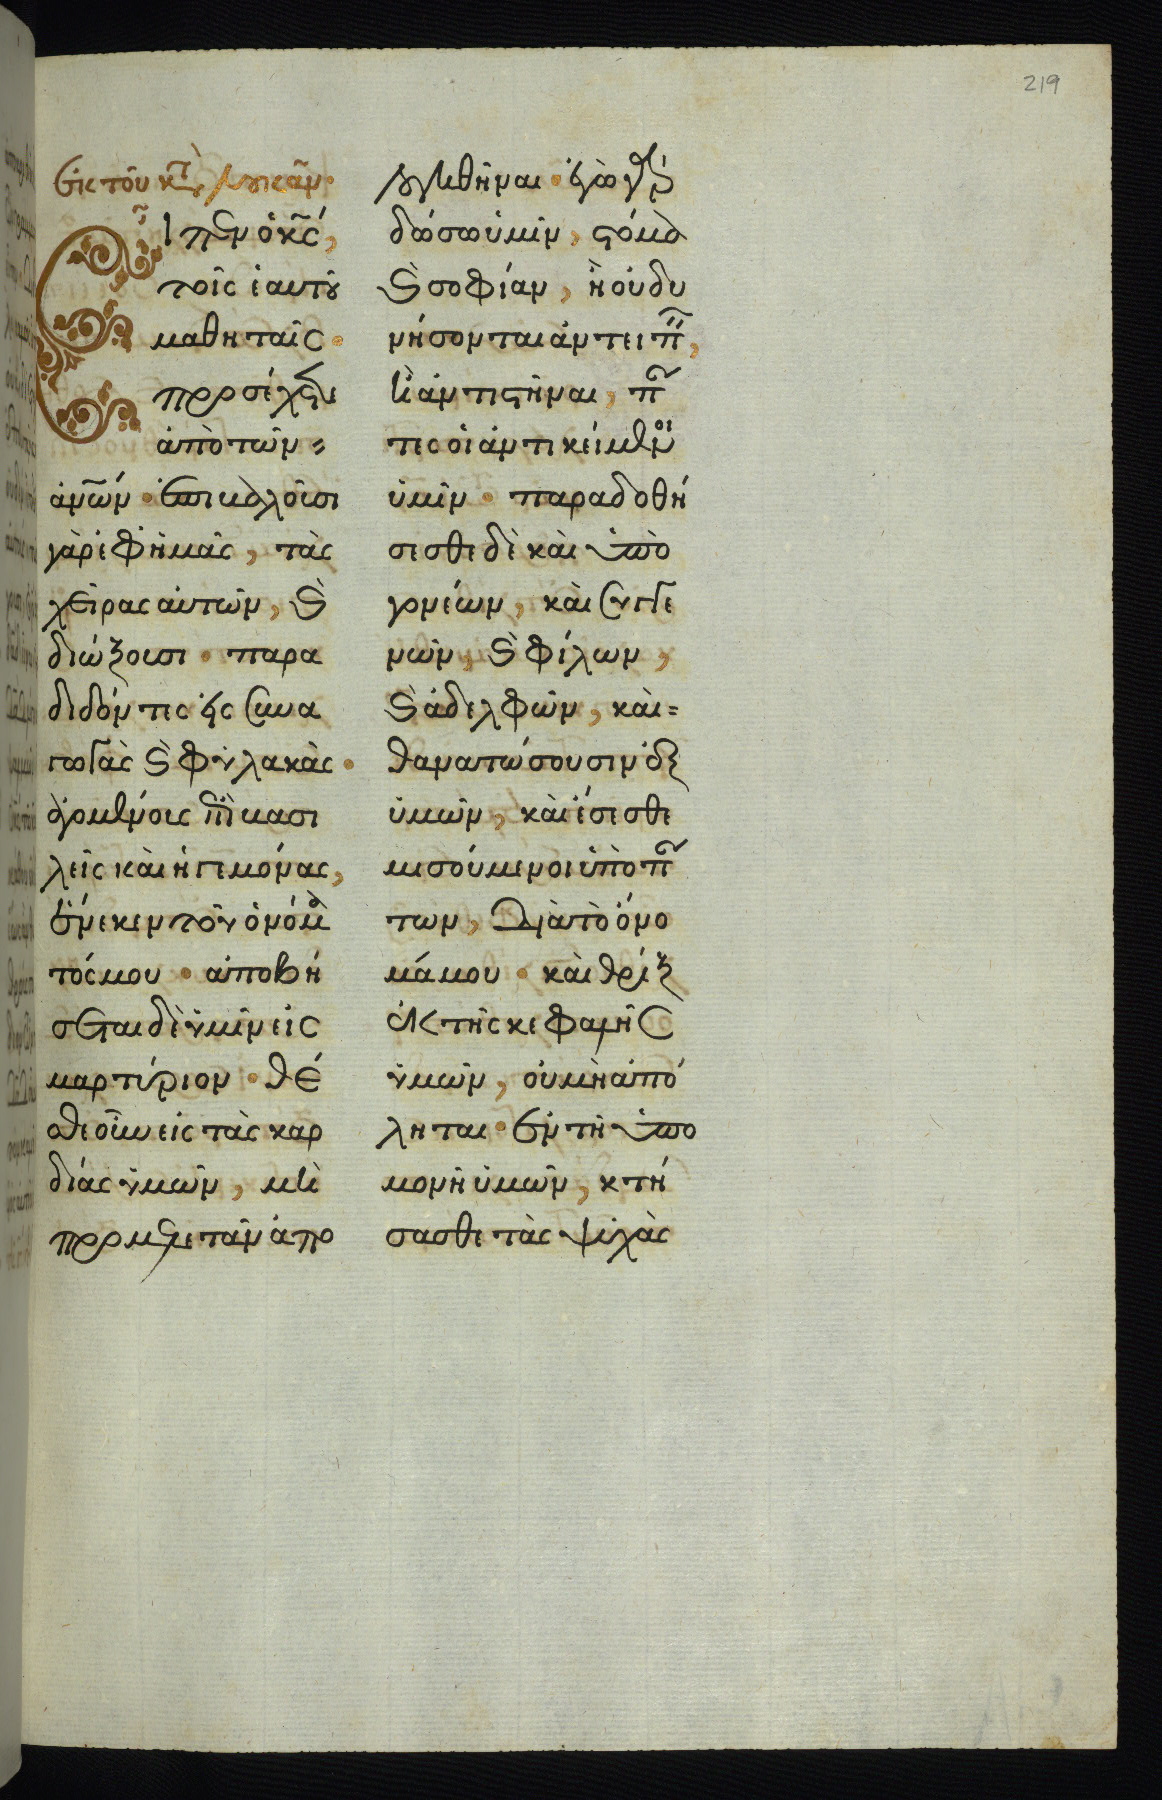 219
Ἐκ τοῦ κατὰ Λουκᾶν·
Εἶπεν ὁ κς,
τοῖς ἑαυτοῦ
μαθηταῖς·
προσέχετε
ἀπὸ τῶν
ἀνῶν· ἐπιβαλοῦσι
γὰρ ἐφ ἡμᾶς, τὰς
χεῖρας αὐτῶν, καὶ
διώξουσι· παρα
διδόντες εἰς συνα
γωγὰς καὶ φυλακὰς·
ἀγομένους ἐπὶ βασι
λεῖς καὶ ἡγεμόνας,
ἕνεκεν τοῦ ὀνόμα
τός μου· ἀποβή
σεται δὲ ὑμῖν εἰς
μαρτύριον· θέ
σθε οὖν εἰς τὰς καρ
δίας ὑμῶν, μὴ
προμελετᾶν ἀπο
λογηθῆναι· ἐγὼ γὰρ
δώσω ὑμῖν, στόμα
καὶ σοφίαν, ᾗ οὐ δυ
νήσονται ἀντειπεῖν,
ἢ ἀντιστῆναι, πάν
τες οἱ ἀντικείμενοι
ὑμῖν· παραδοθή
σεσθε δὲ καὶ ὑπὸ
γονέων, καὶ συγγε
νῶν, καὶ φίλων,
καὶ ἀδελφῶν, καὶ
θανατώσουσιν ἐξ
ὑμῶν, καὶ ἔσεσθε
μισούμενοι ὑπὸ πάν
των, διὰ τὸ ὄνο
μά μου· καὶ θρὶξ
ἐκ τῆς κεφαλῆς
ὑμῶν, οὐ μὴ ἀπό
ληται· ἐν τῇ ὑπο
μονῇ ὑμῶν, κτή
σασθε τὰς ψυχὰς